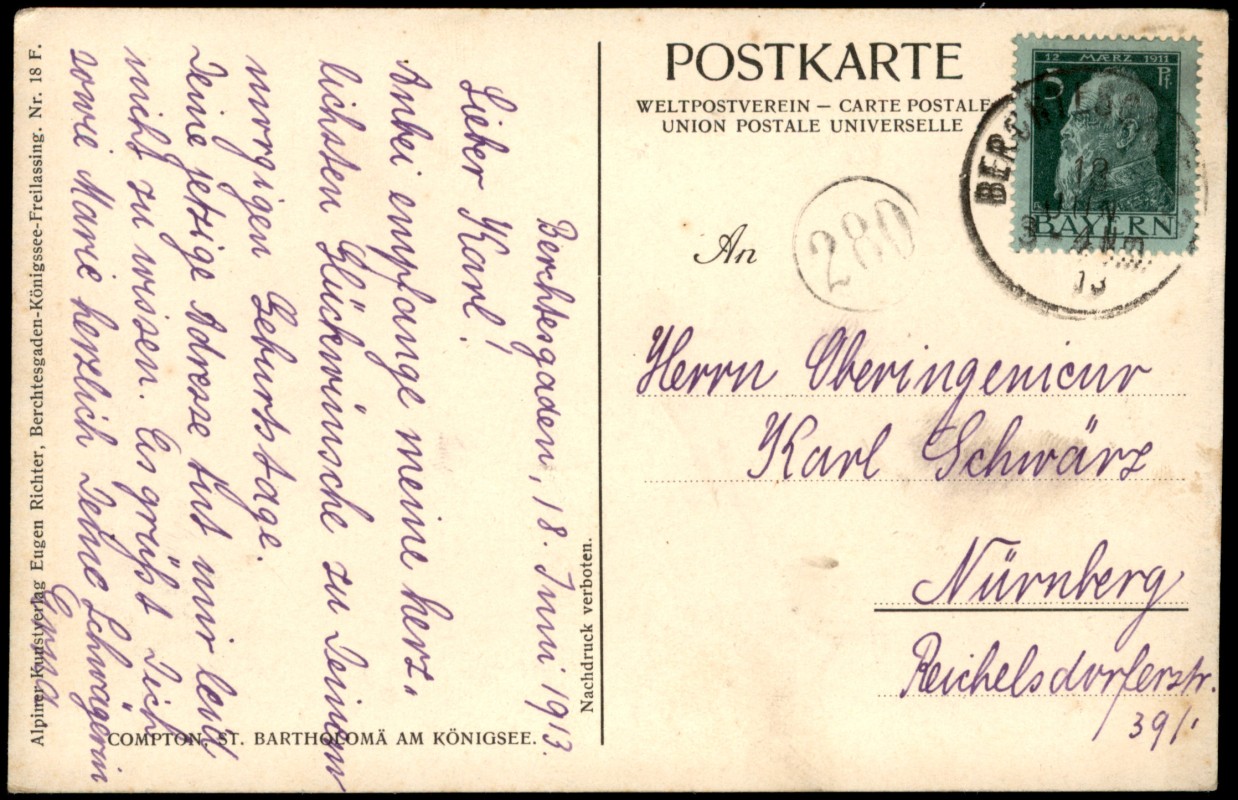 Alpiner Kunstverlag Eugen Richter, Berchtesgaden-Königssee-Freilassing. Nr. 18 F.
Berchtesgaden, 18. Juni 1913.
Lieber Karl!
Anbei empfange meine herz-
lichsten Glückwünsche zu Deinem
morgigen Geburtstage.
Deine jetzige Adresse tut mir leid
nicht zu wissen. Es grüßt Dich
sowie Marie herzlich Deine Schwägerin
COMPTON, ST. BARTHOLOMÄ AM KÖNIGSEE.
Nachdruck verboten.
POSTKARTE
WELTPOSTVEREIN – CARTE POSTALE
UNION POSTALE UNIVERSELLE
12 MÆRZ 1911
5 Pf.
BAYERN
18
JUN
13
280
An
Herrn Oberingenieur
Karl Schwärz
Nürnberg
Reichelsdorferstr.
39/1